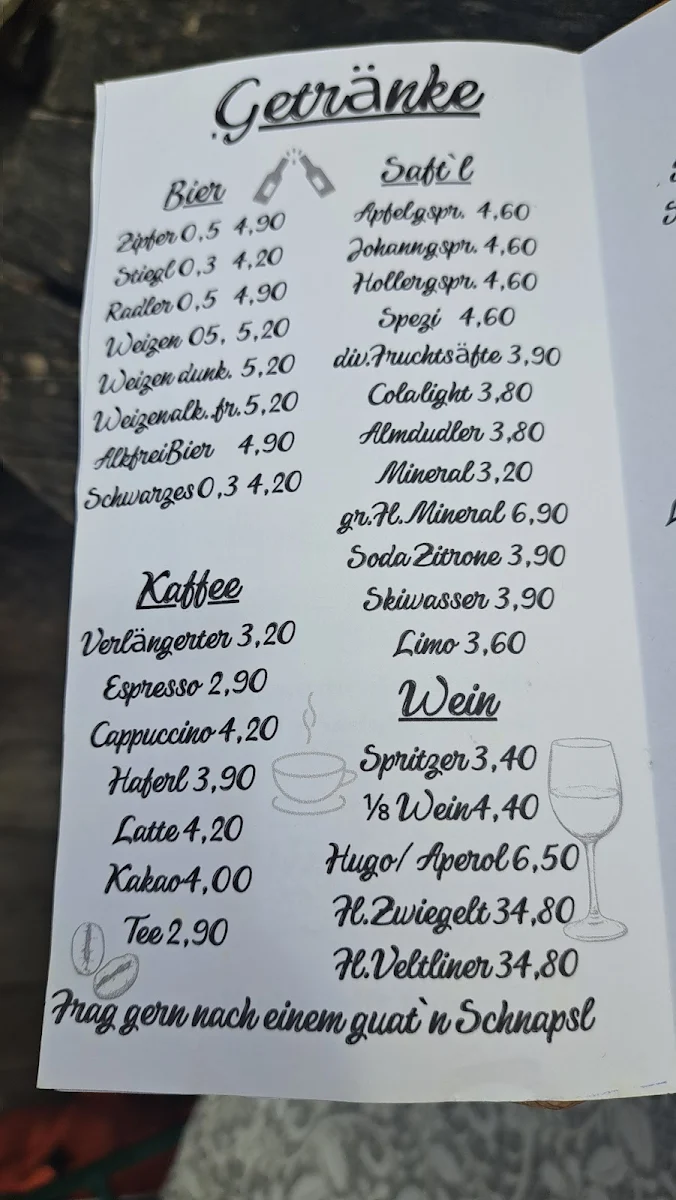 Getränke
Bier
Zipfer 0,5 4,90
Stiegl 0,3 4,20
Radler 0,5 4,90
Weizen 05, 5,20
Weizen dunk. 5,20
Weizenalk..fr.5,20
AlkfreiBier 4,90
Schwarzes 0,3 4,20
Kaffee
Verlängerter 3,20
Espresso 2,90
Cappuccino 4,20
Haferl 3,90
Latte 4,20
Kakao 4,00
Tee 2,90
Saft`l
Apfelgspr. 4,60
Johanngspr. 4,60
Hollergspr. 4,60
Spezi 4,60
div.Fruchtsäfte 3,90
Colalight 3,80
Almdudler 3,80
Mineral 3,20
gr.Fl.Mineral 6,90
Soda Zitrone 3,90
Skiwasser 3,90
Limo 3,60
Wein
Spritzer 3,40
⅛ Wein 4,40
Hugo/ Aperol 6,50
Fl.Zwiegelt 34,80
Fl.Veltliner 34,80
Frag gern nach einem guat`n Schnapsl